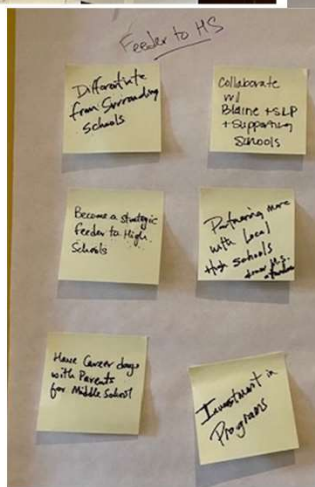 Feeder to HS
Differentiate
from Surrounding
schools
Collaborate
w/
Blaine + SLP
+ Supporting
Schools
Become a strategic
feeder to High
Schools
Partnering more
with Local
High Schools
Have Career days
with Parents
for Middle School
Investment in
Programs